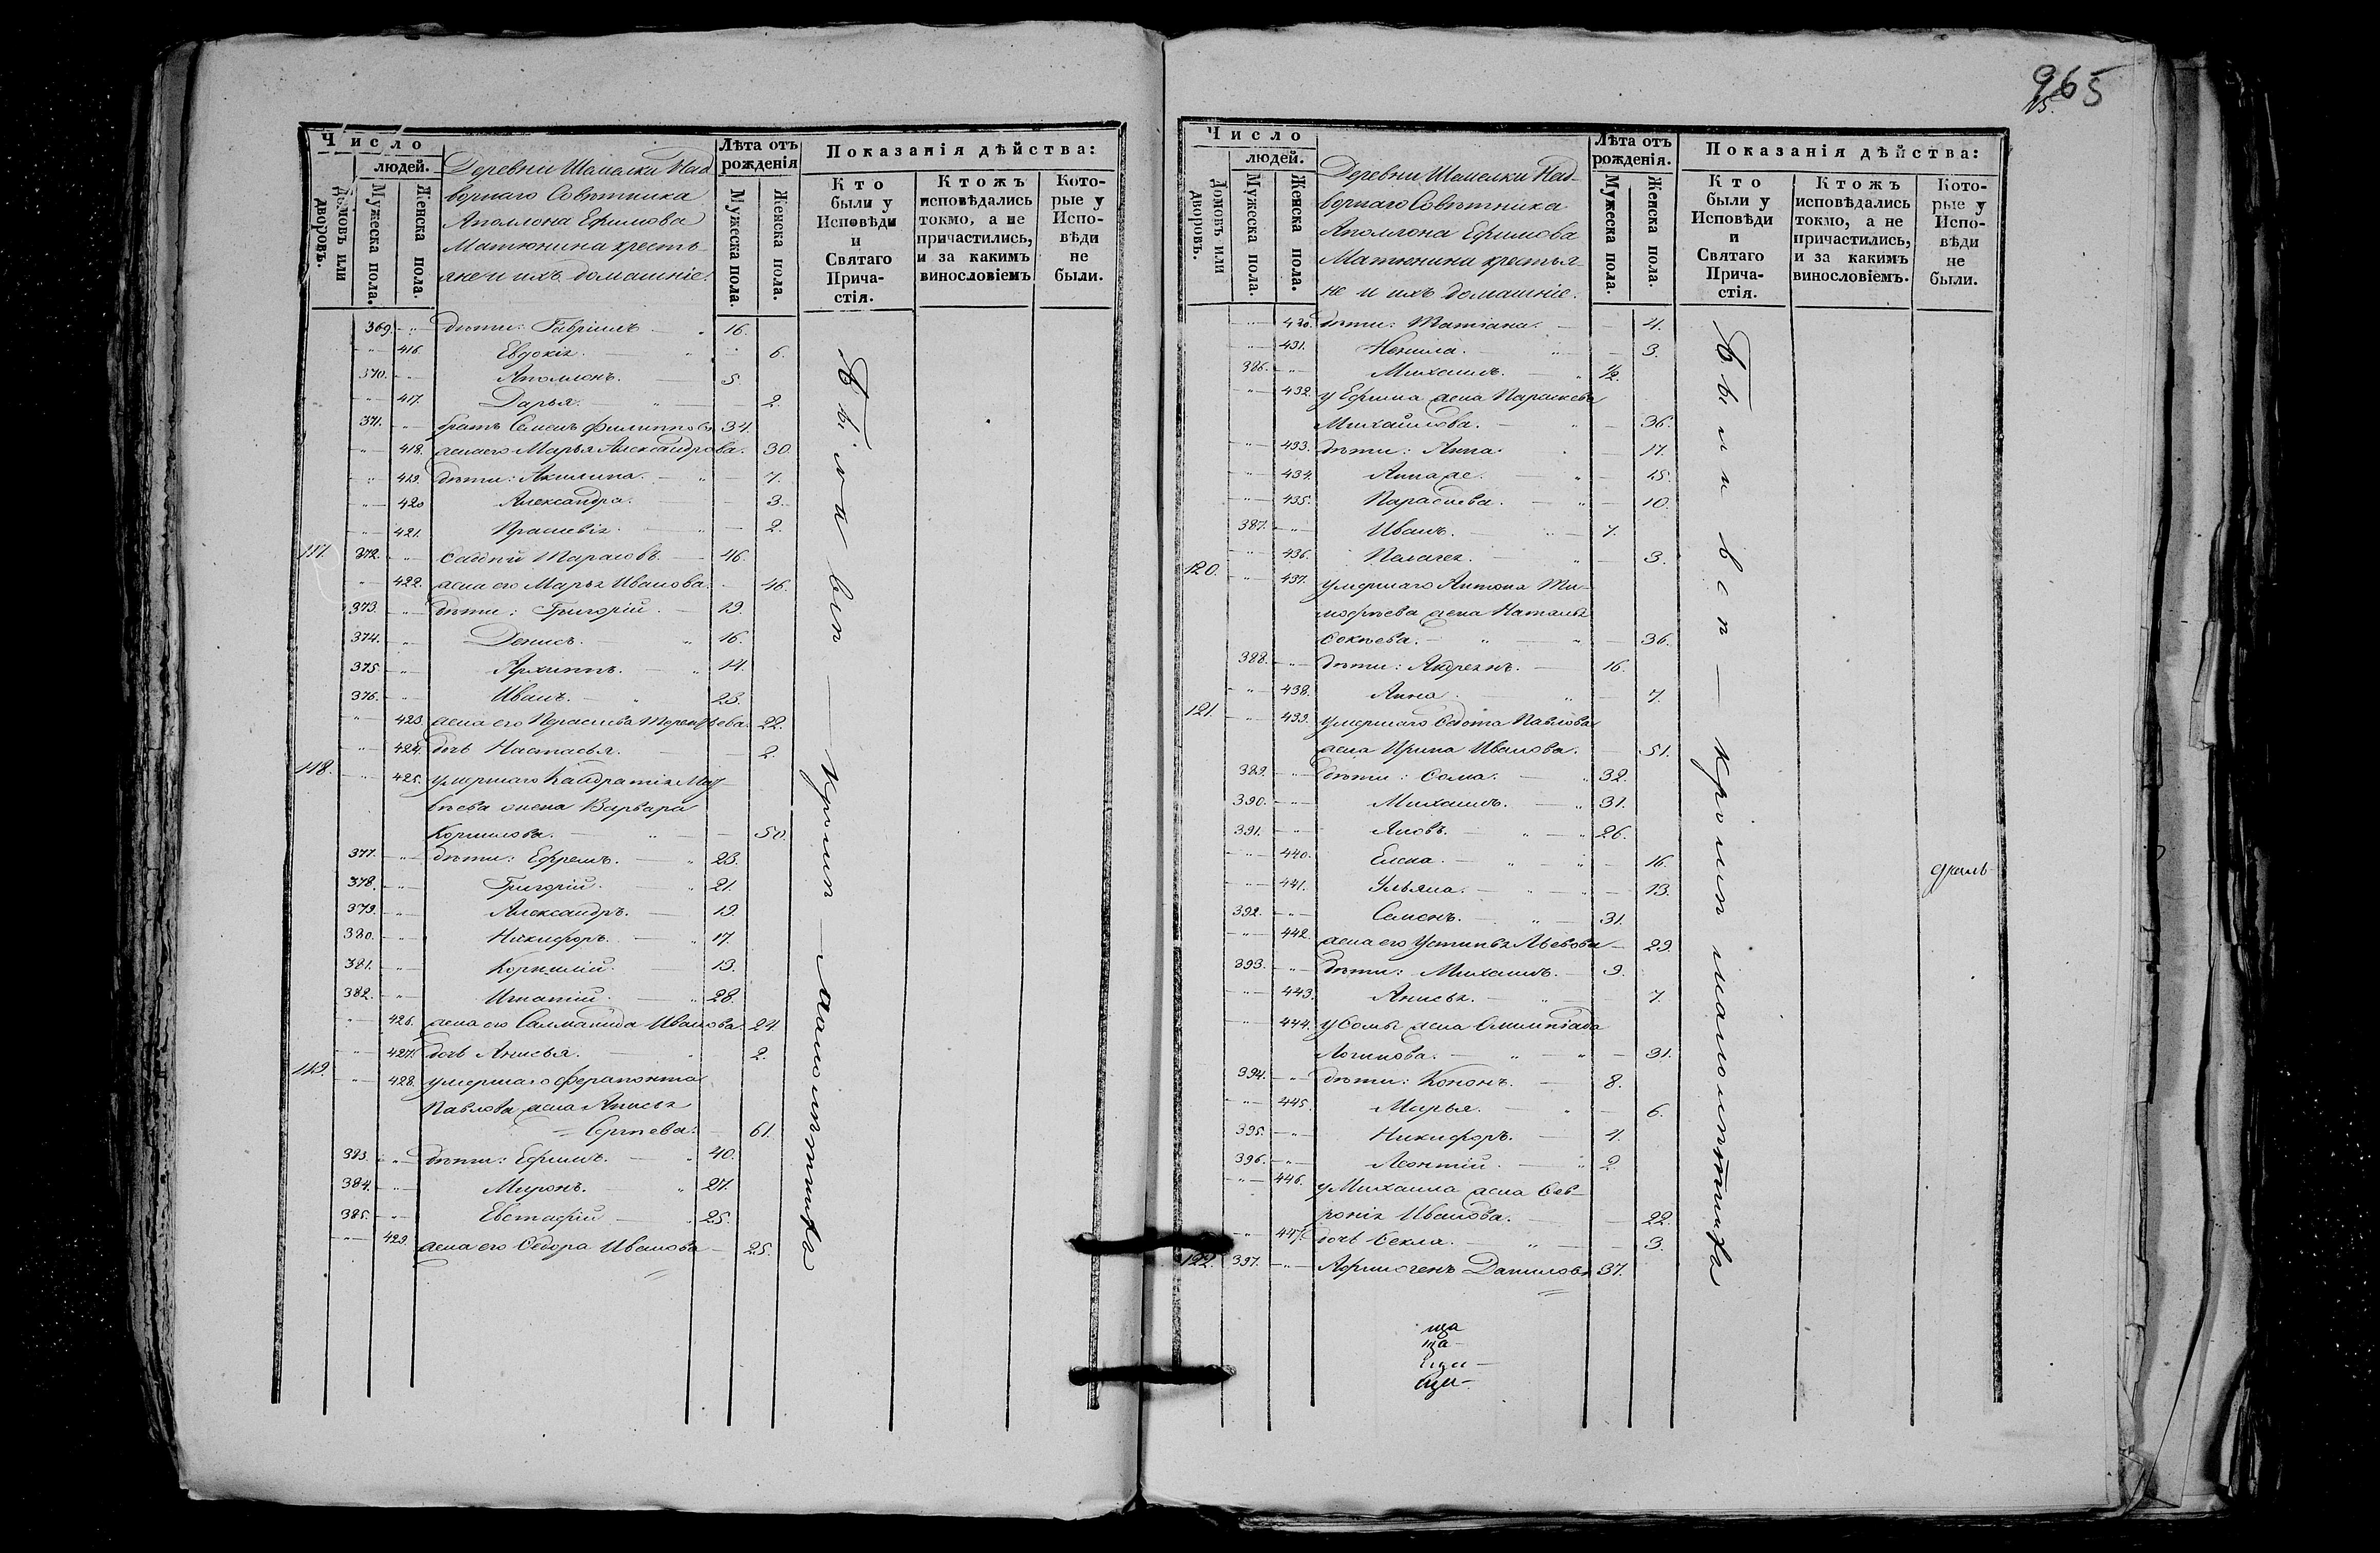 965
15.
Число
людей.
Домовъ или дворовъ.
Мужеска пола.
Женска пола.
Деревни Шемелки Над-
ворнаго Совѣтника
Аполлона Ефимова
Матюнина кресть-
яне и ихъ домашніе.
Лѣта отъ рожденія
Мужеска пола.
Женска пола.
Показанія дѣйства:
Кто были у Исповѣди и Святаго Прича-стія.
Ктожъ исповѣдались токмо, а не причастились, и за какимъ винословіемъ
Кото-рые у Испо-вѣди не были.
369. дѣти: Гавріилъ 16.
416. Евдокія. 6.
370. Аполлонъ. 5.
417. Дарья. 2.
371. братъ Семенъ Филипповъ 34.
418. жена его Марья Александрова. 30.
419. дѣти: Акилина. 7.
420 Александра. 3.
421. 2.
117. 372. Савдій Тарасовъ 46.
422. жена его Марья Иванова. 46.
373. дѣти: Григорій. 19.
374. Денисъ. 16.
375. Архиппъ. 14.
376. Иванъ. 23.
423. жена его Парасиева Терентьева. 22.
424. дочь Настасья. 2.
118. 425. умершаго Кандратія Мат-
вѣева жена Варвара
Корнилова. 50.
377. дѣти: Ефремъ. 23.
378. Григорій. 21.
379. Александръ. 19.
380. Никифоръ. 17.
381. Корнилій. 13.
382. Игнатій. 28.
426. жена его Саламанида Иванова. 24.
427. дочь Анисья. 2.
119. 428. умершаго Ферапонта
Павлова жена Анисья
Сергѣева. 61.
383. дѣти: Ефимъ. 40.
384. Миронъ. 27.
385. Евстафій 25.
429. жена его Ѳедора Иванова 25.
Были вси — кромѣ — малолѣтнихъ
Число
людей.
Домовъ или дворовъ.
Мужеска пола.
Женска пола.
Деревни Шемелки Над-
ворнаго Совѣтника
Аполлона Ефимова
Матюнина крестья-
не и ихъ домашніе.
Лѣта отъ рожденія.
Мужеска пола.
Женска пола.
Показанія дѣйства:
Кто были у Исповѣди и Святаго Прича-стія.
Ктожъ исповѣдались токмо, а не причастились, и за какимъ винословіемъ.
Кото-рые у Испо-вѣди не были.
430. дѣти: Татіана. 4.
431. Ненила. 3.
386. Михаилъ. 1/2.
432. у Ефима жена Параскева
Михайлова. 36.
433. дѣти: Анна. 17.
434. Анна же. 15.
435. Парасиева. 10.
387. Иванъ. 7.
436. Палагея. 3.
120. 437. умершаго Антона Ти-
мофѣева жена Наталья
Ѳокѣева. 36.
388. дѣти: Андреянъ. 16.
438. Анна. 7.
121. 439. умершаго Ѳедота Павлова
жена Ирина Иванова. 51.
389. дѣти: Ѳома. 32.
390. Михаилъ. 31.
391. Яковъ. 26.
440. Елена. 16.
441. Ульяна. 13.
392. Семенъ. 31.
442. жена его Устинья Львова 29.
393. дѣти: Михаилъ. 9.
443. Анисья. 7.
444. у Ѳомы жена Олимпіада
Логинова. 31.
394. дѣти: Кононъ. 8.
445. Марья. 6.
395. Никифоръ. 4.
396. Леонтій. 2.
446. у Михаила жена Ѳев-
ронія Иванова. 22.
447. дочь Ѳекла. 3.
122. 397. Афиногенъ Даниловъ 37.
Были вси — кромѣ малолѣтнихъ
ща
ща-